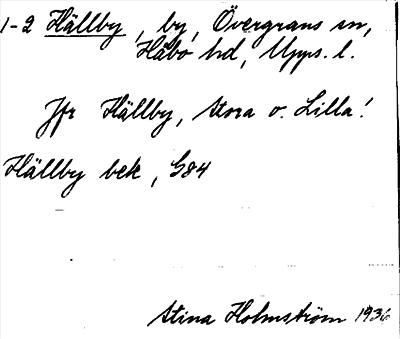 1-2 Hällby, by, Övergrans sn,
Håbo hd, Upps. l.
Jfr Hällby, Stora o. Lilla!
Hällby bek, G84
Stina Holmström 1936